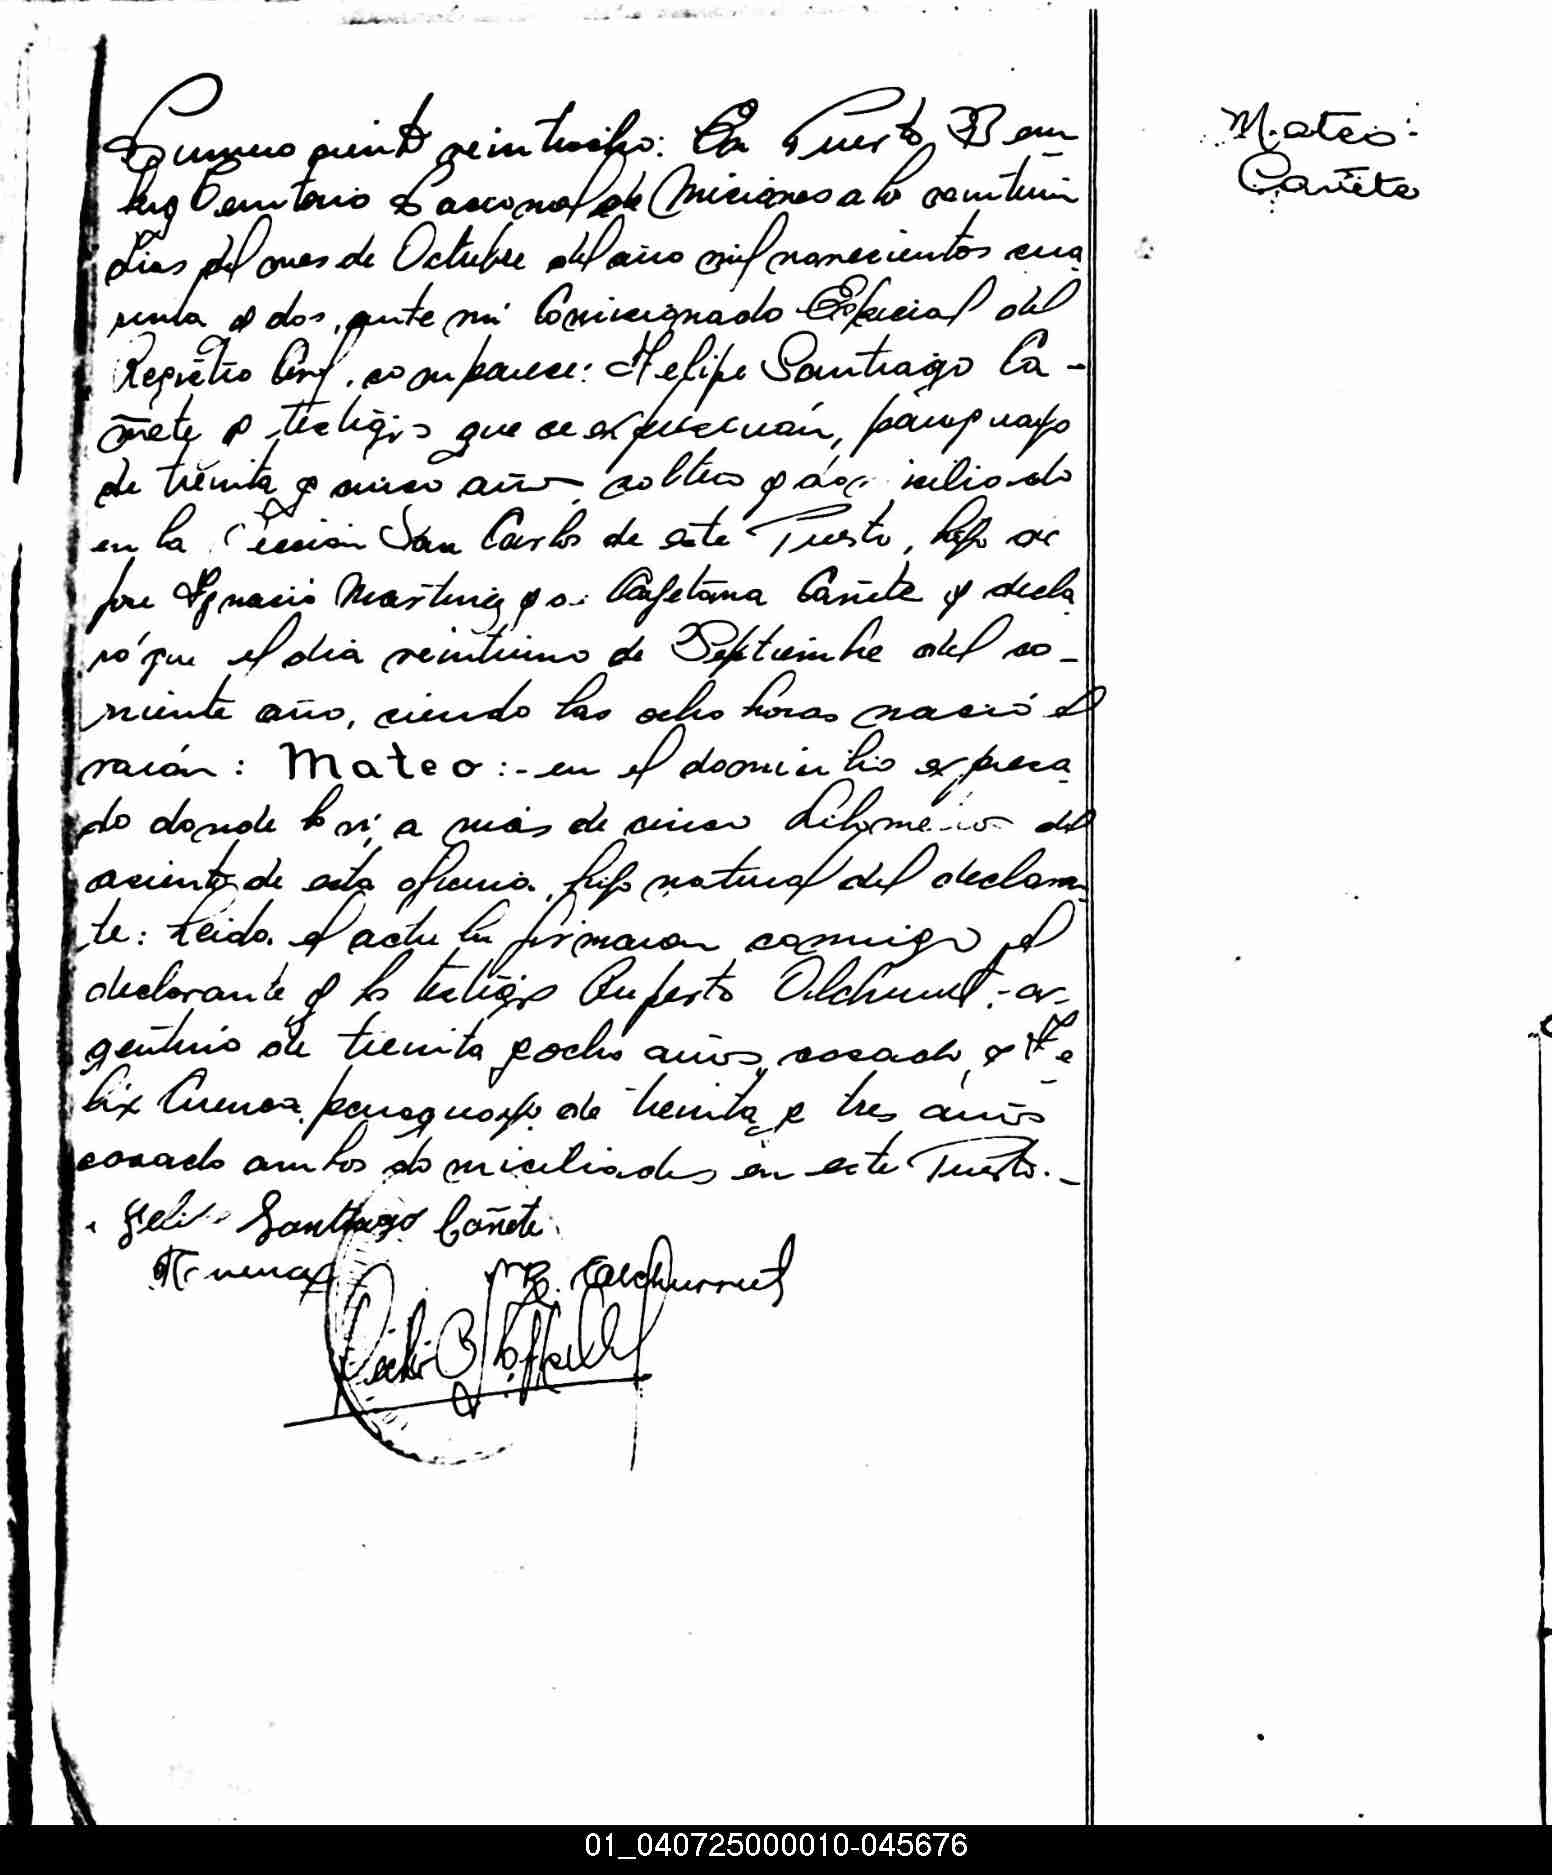 Mateo:
Cañete
Número ciento veintiocho: En Puerto Bem-
berg Territorio Nacional de Miciones a lo veintiun
dias del mes de Octubre del año mil novecientos cua
renta y dos, ante mi Comicionado Especial del
Registro Civil, comparece: Felipe Santiago Ca-
ñete y testigos que se expresarán, paraguayo
de treinta y cinco años, soltero y domiciliado
en la Sección San Carlos de este Puerto, hijo de
Ignacio Martinez y de Cayetana Cañete y decla
ró que el dia veintiuno de Septiembre del co-
rriente año, ciendo las ocho horas nació el
varón: Mateo:- en el domicilio expresa
do donde lo ví, a más de cinco kilometros del
aciento de esta oficina, hijo natural del declaran
te: Leida el acta la firmaron conmigo el
declarante y los testigos Ruperto Alchurrut,- ar-
gentino de treinta y ocho años, casado, y Fe
lix Cuenca, paraguayo de treinta y tres años
casado ambos domiciliados en este Puerto.-
Felipe Santiago Cañete
R. Alchurrut
01_040725000010-045676